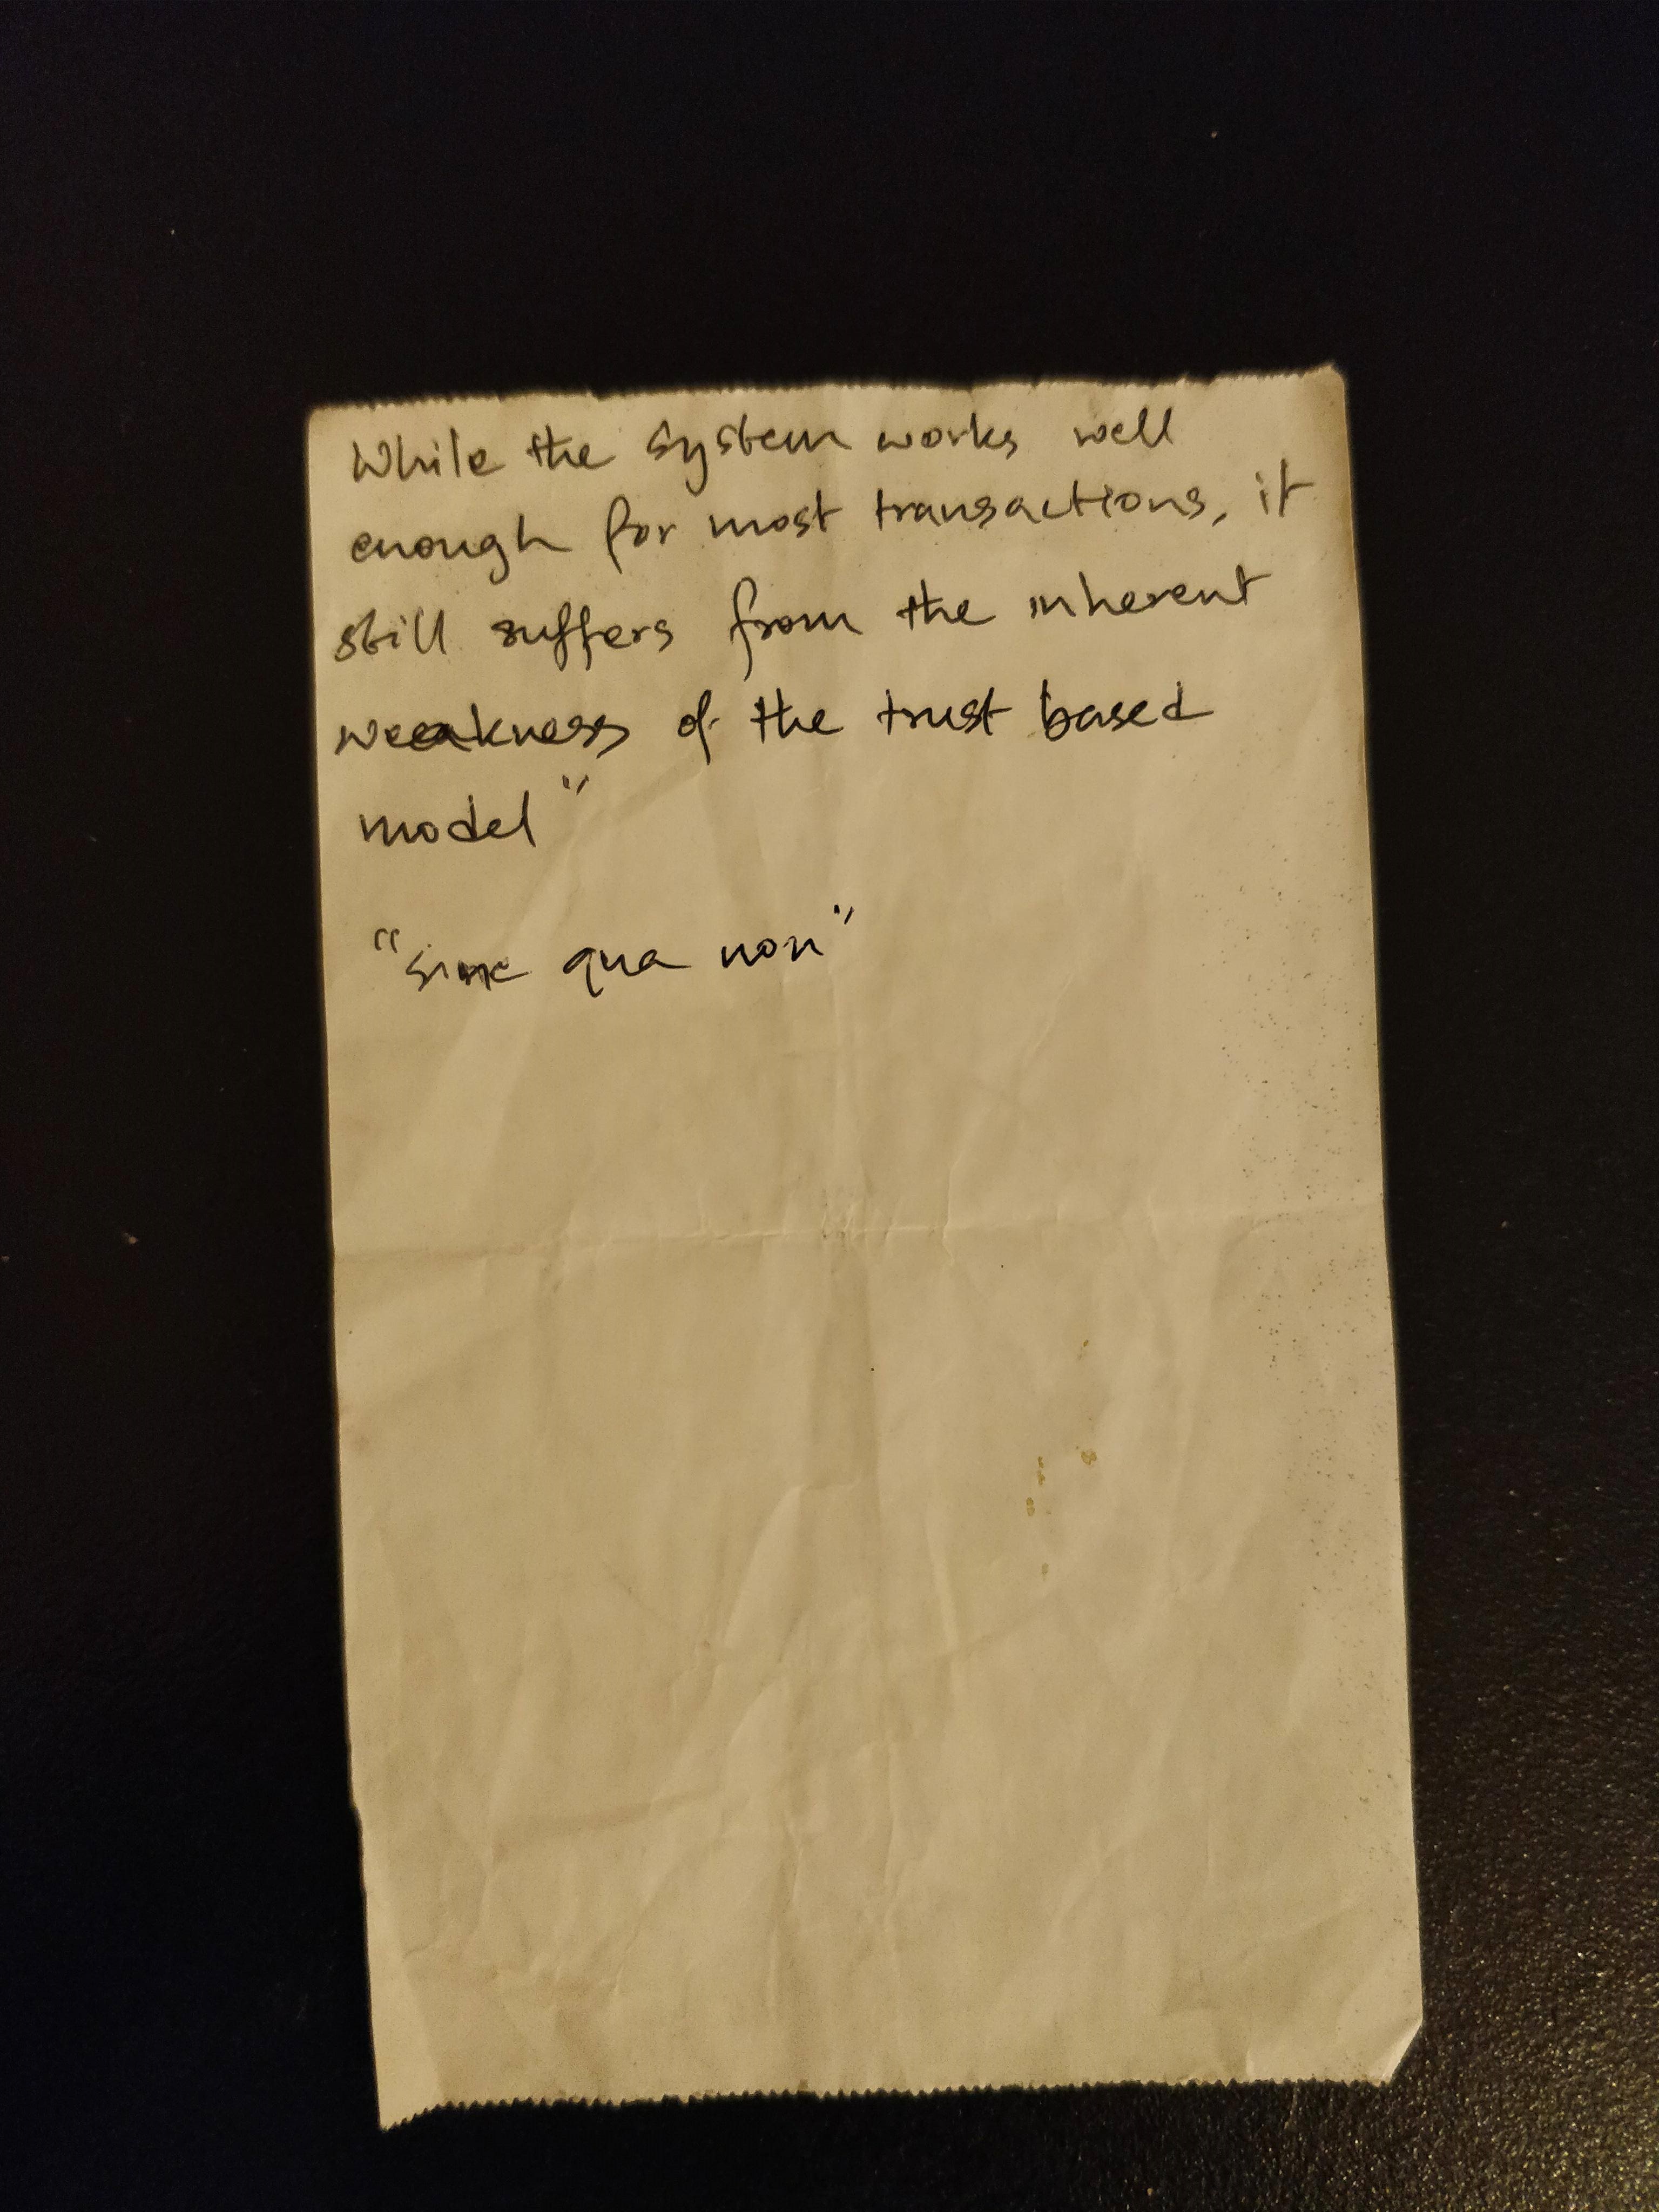 While the system works well
enough for most transactions, it
still suffers from the inherent
weakness of the trust based
model"
"sine qua non"